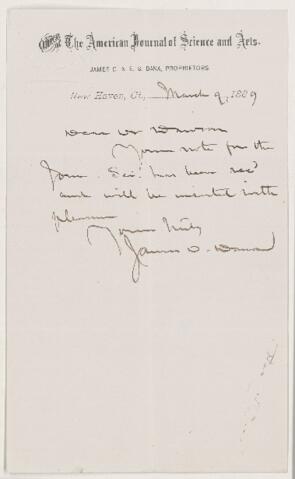 The American Journal of Science and Arts.
JAMES D. & E. S. DANA, PROPRIETORS.
New Haven, Ct., March 9, 1889
Dear Mr Dawson
Your note for the
Jour. Sci. has been rec'd
and will be inserted with
pleasure
Yours truly
James D. Dana